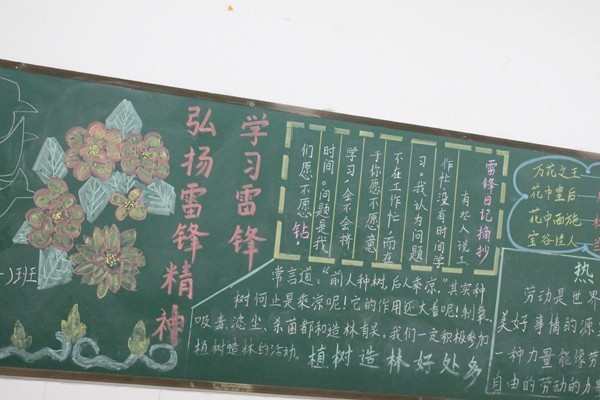 学习雷锋
弘扬雷锋精神
)班
雷锋日记摘抄
有些人说工
作忙、没有时间学
习。我认为问题
不在工作忙,而在
于你愿不愿意
学习,会不会挤
时间。问题是我
们愿不愿意钻。
常言道:“前人种树,后人来凉。”其实种
树何止是来凉呢!它的作用还大着呢!制氧、
吸毒、滤尘、杀菌都和造林有关,我们一定积极参加
植树造林的活动。
植树造林好处多
万花之王
花中皇后
花中西施
空谷佳人
热
劳动是世界
美好事情的源
一种力量能使劳
自由的劳动的力